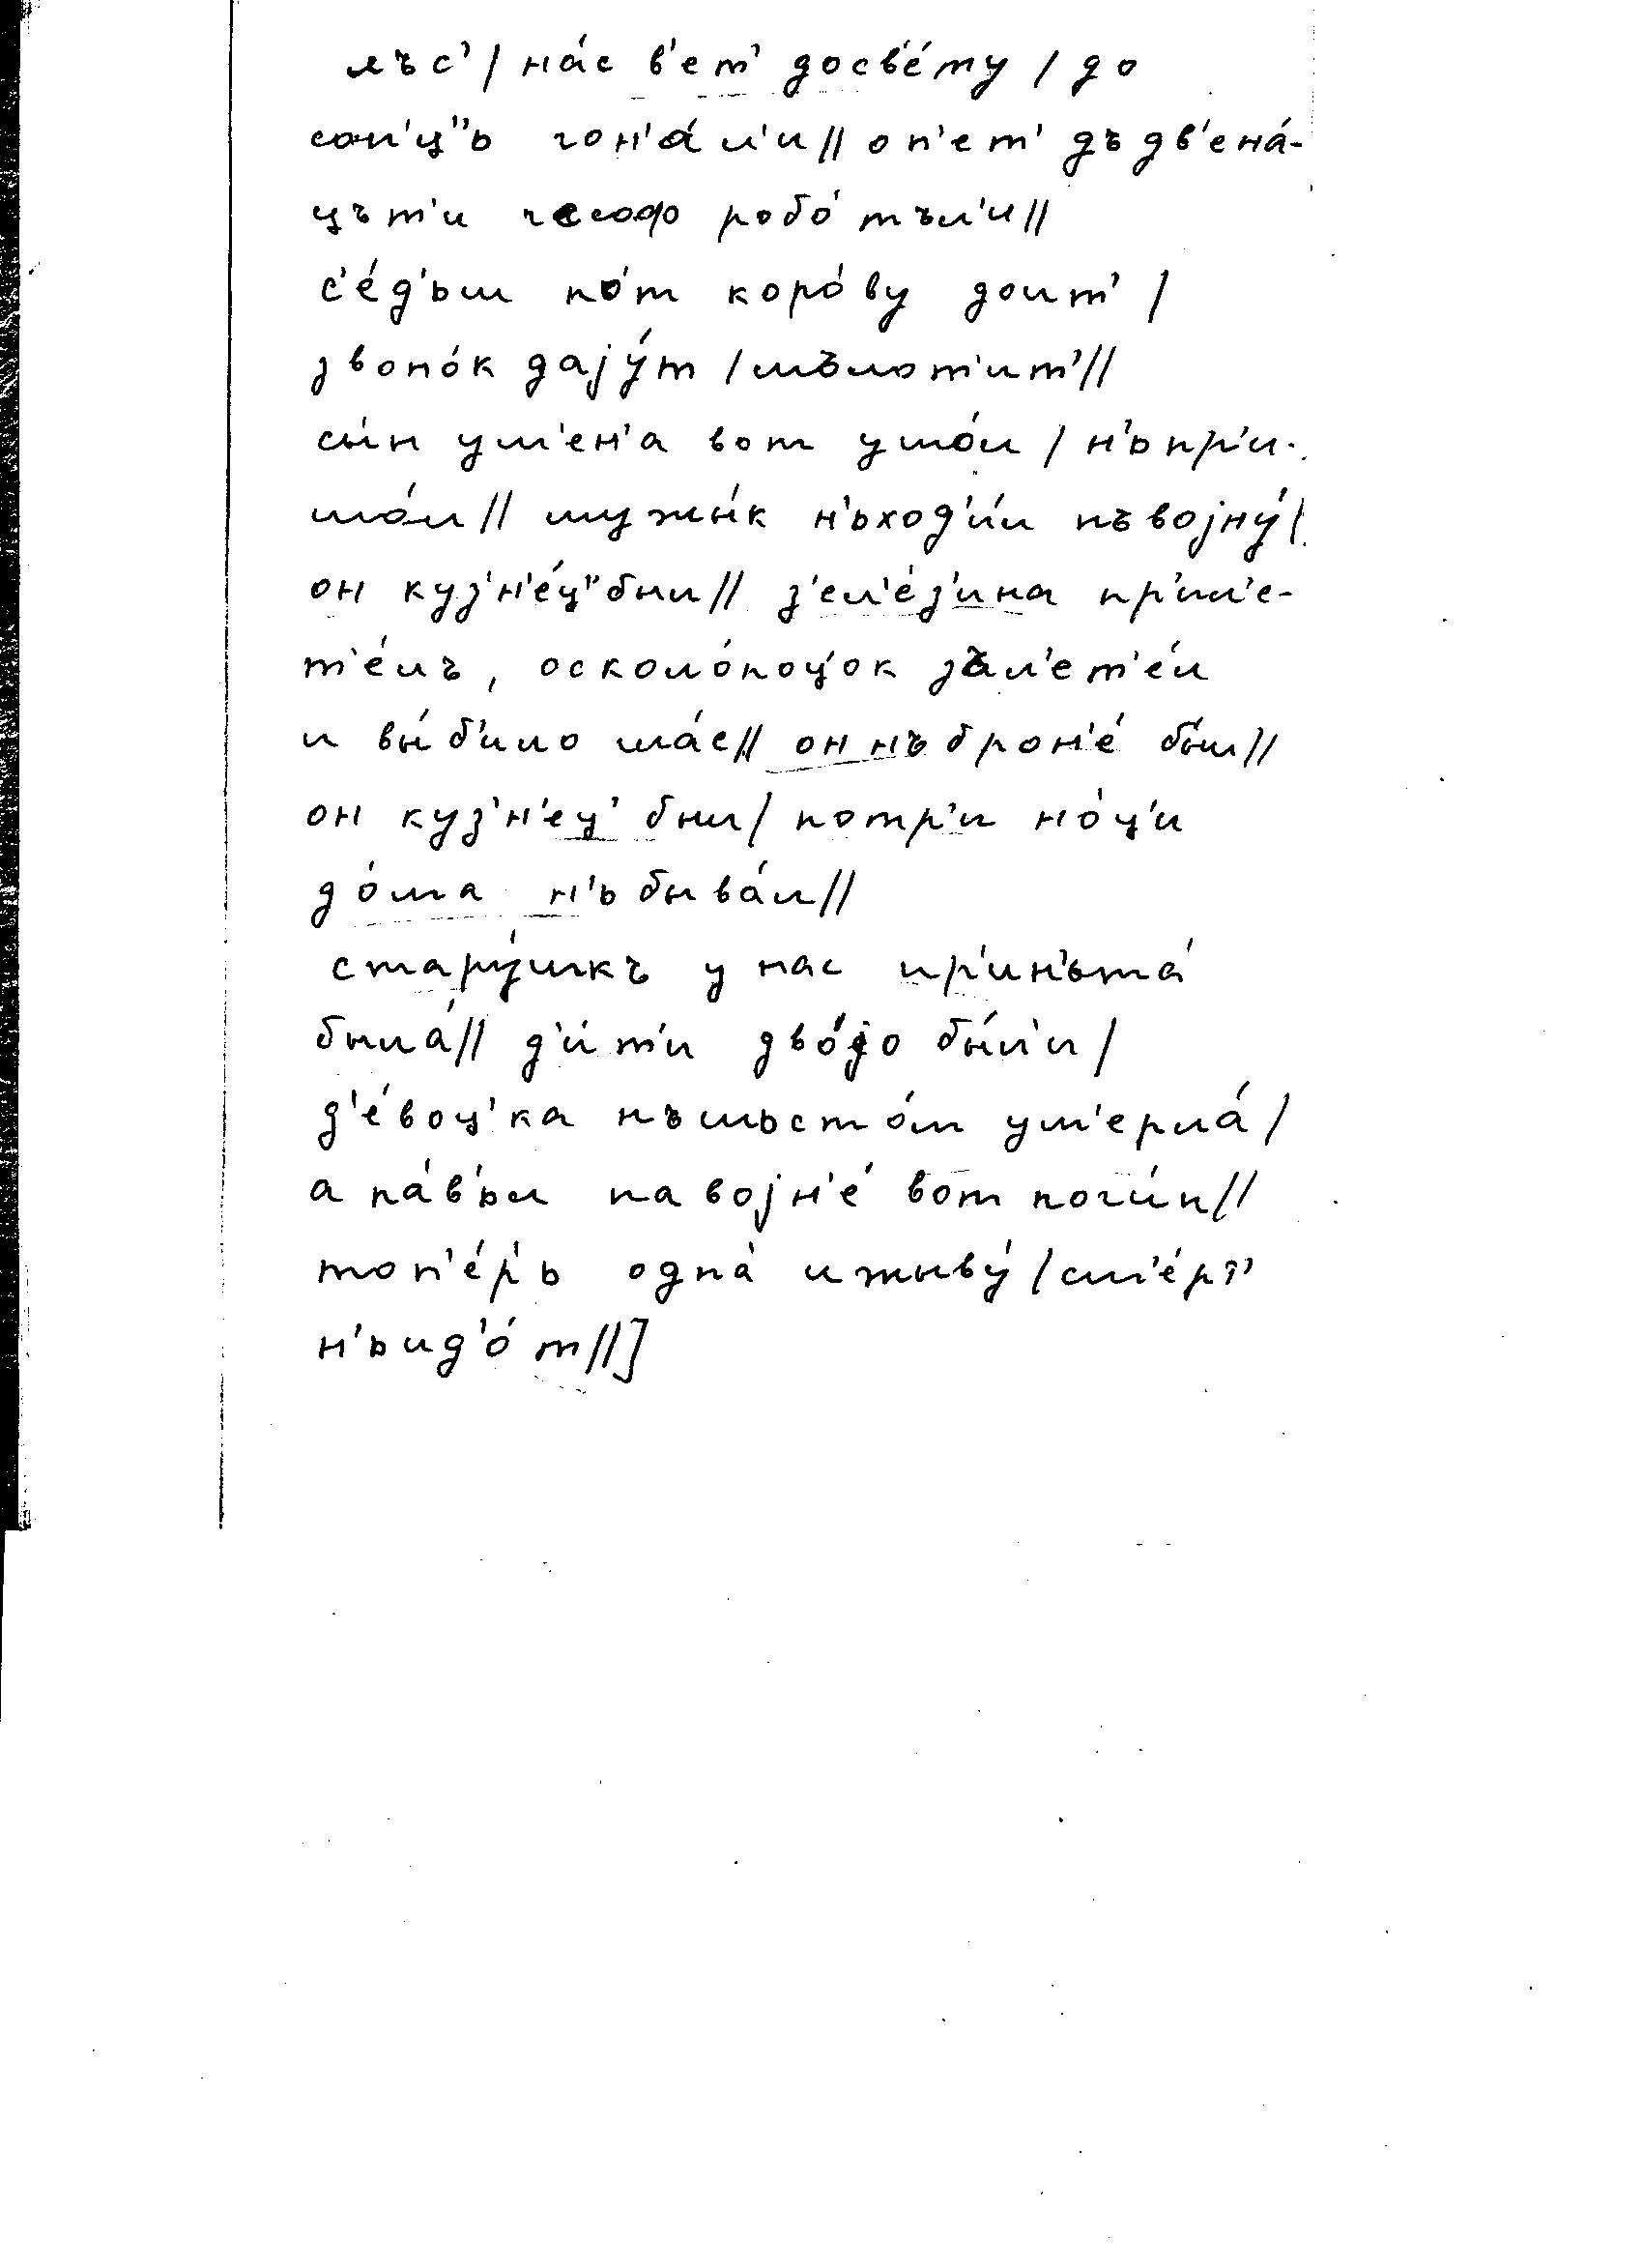 лъс’/ на́с в’ет’ досв’е́ту / до
сон’ц”ь гон’а́л’и// оп’ет’ дъ дв’ена́-
цът’и часоф рабо́тъл’и//
с’е́д’ьш по́т коро́ву доит’ /
звоно́к даjу́т / мълот’ит’//
сы́н у м’ен’а вот ушо́л / н’ь пр’и-
шо́л// мужы́к н’ь ход’и́л нъ воjну́/
он куз’н’е́ц” был// з’ел’е́з’ина пр’ил’е-
т’е́лъ, осколо́поц’ок зал’ет’е́л
и вы́б’ило гла́с// он нъ брон’е́ бы́л//
он куз’н’ец’ был/ по тр’и но́ц’и
до́ма н’ь быва́л//
стару́шкъ у нас пр’ин’ьта́
была́// д’и́т’и дво́jо бы́л’и /
д’е́воц’ка нъ шьсто́м ум’ерла́ /
а па́в’ьл на воjн’е́ вот поги́п//
топ’е́р’ь одна́ и жыву́ / см’е́рт’
н’ь ид’о́т//]